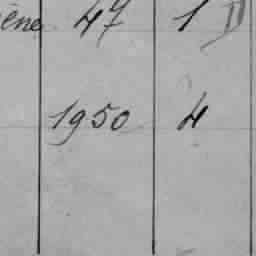 ène 47 1 II
1950 4